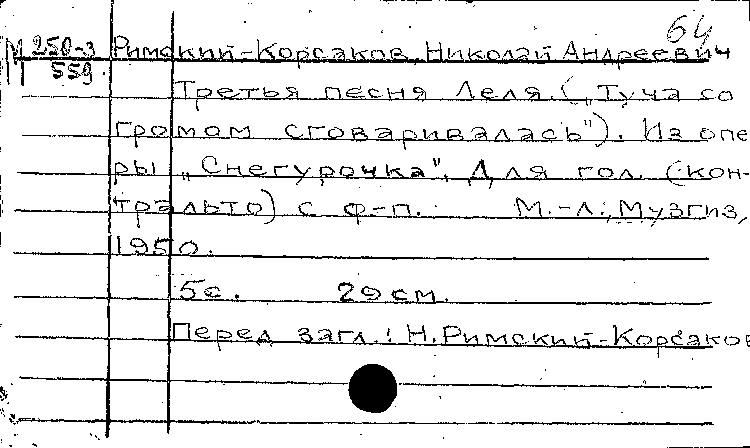 64
М 250-3 Римский-Корсаков, Николай Андреевич
559. Третья песня Леля. („Туча со
громом сговаривалась"). Из опе
ры „Снегурочка". Для гол. (кон-
тральто) с ф-п. М.-Л., Музгиз,
1950.
5с. 29 см.
Перед загл.: Н. Римский-Корсаков